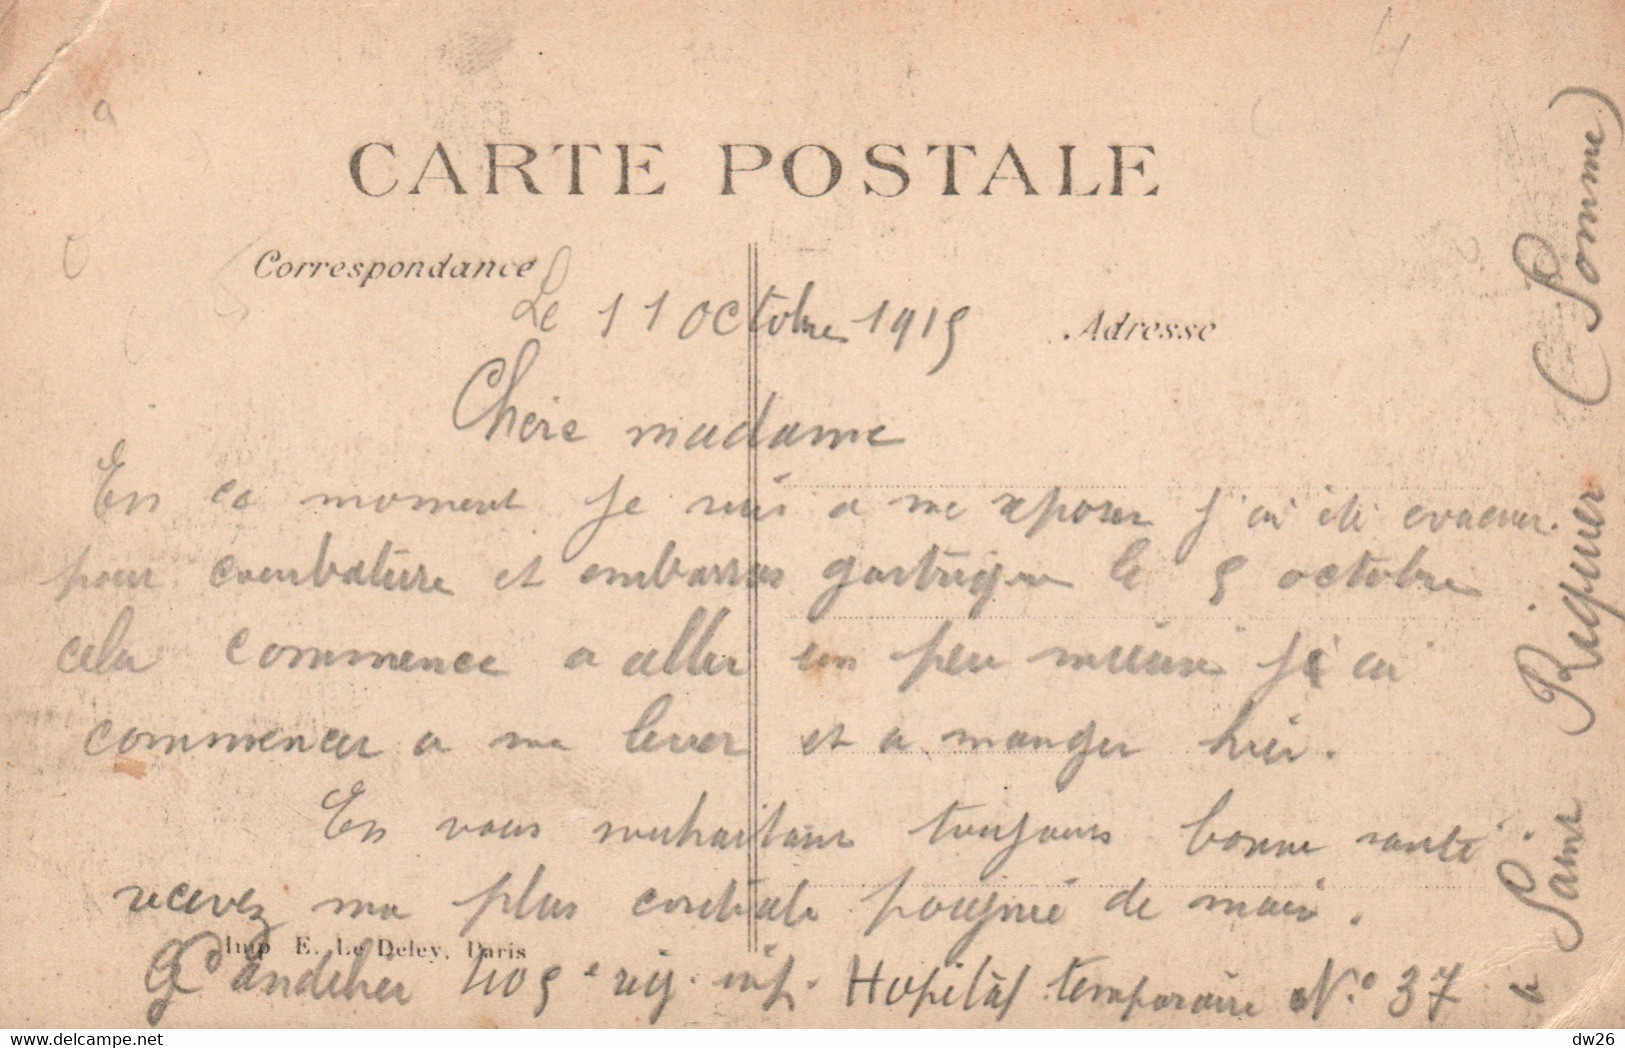 CARTE POSTALE
Correspondance
Le 11 octobre 1915
Adresse
Chère madame
En ce moment je suis a me reposer j'ai été evacuer
pour courbature et embarras gastrique le 5 octobre
cela commence a aller un peu mieux j'ai
commencer a me lever et a manger hier.
En vous souhaitant toujours bonne santé
recevez ma plus cordiale poignée de main.
Imp E. Le Deley, Paris
405e rég. inf. Hopital temporaire No. 37
Saint Riquier (Somme)
dw26